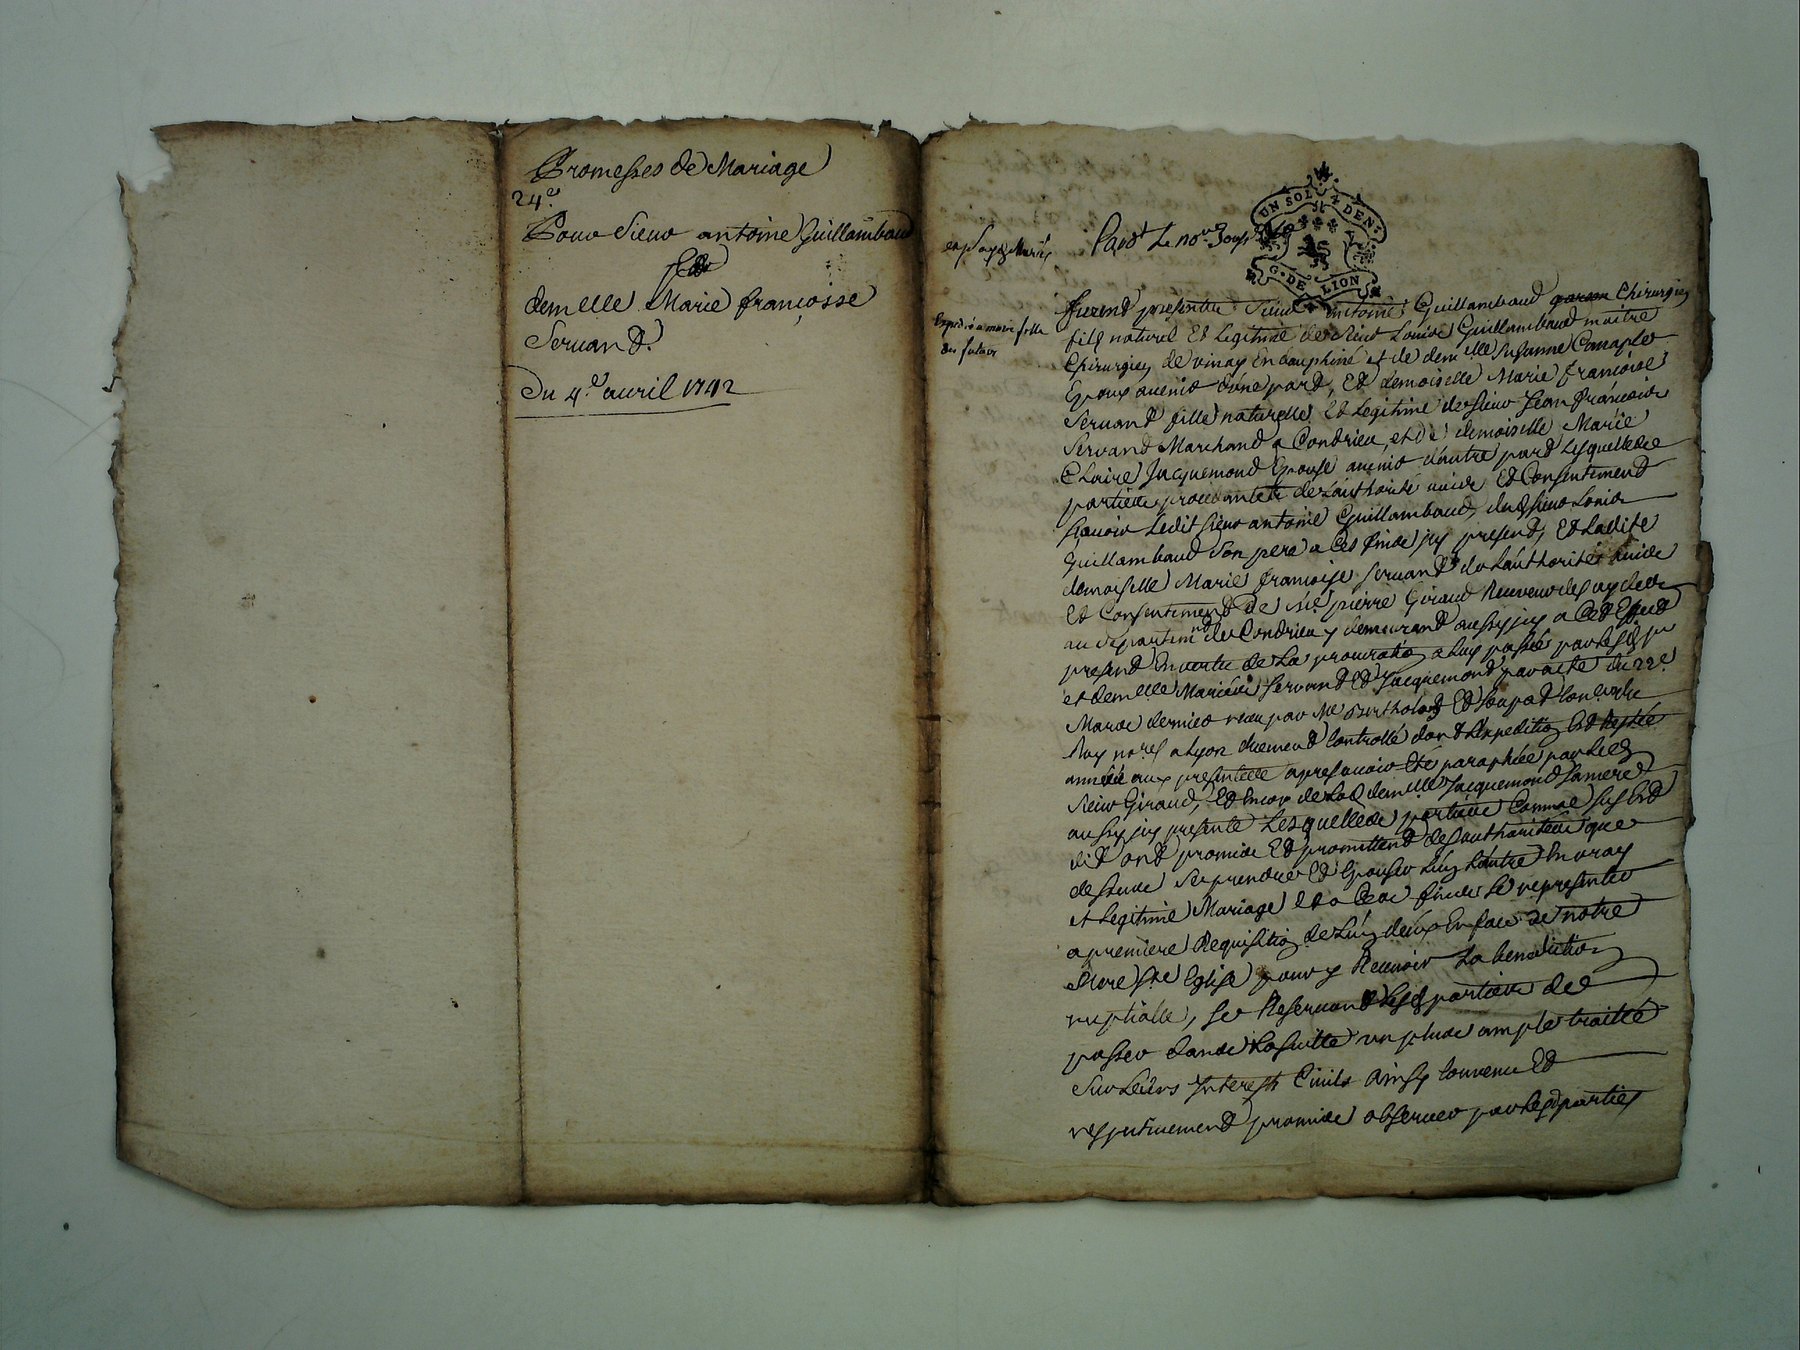 Promesses de Mariage
24.e
Pour Sieur antoine Guillambaud
Et
demelle Marie françoise
Servand.
Du 4.e avril 1742
UN SOL 4 DEN.
G. DE LION
Pard.t Le no.re Souss.né
Expedié a marie
du futur
furend presents Sieur Antoine Guillambaud garson Chirurgien
fils naturel Et Legitime de Sieur Louis Guillambaud maitre
Chirurgien de vinay En dauphiné et de demelle Susanne
Epoux avenir d'une part, Et demoiselle Marie françoise
Servand fille naturelle Et Legitime de Sieur Jean François
Servand Marchand a Condrieu, et de demoiselle Marie
Claire Jacquemond Epouse avenir d'autre pard Lesquelles
parties procedantes de L'authorité avis Et Consentement
Sçavoir Ledit Sieur antoine Guillambaud, dud Sieur Louis
Guillambaud Son pere a Ces fins icy present, Et Ladite
demoiselle Marie françoise Servand de L'authorité avis
Et Consentement de Me pierre Giraud Receveur des aydes
au departemt de Condrieu y demeurand aussy icy a Cet Effect
presend En vertu de La procuration a Luy passée par Lesd Sr
et demelle Mariés Servand Et Jacquemond par acte du 22e
Mars dernier receu par Me Et Son Confrere
Roy no.res a Lyon duement Controllé dont L'Expedition Est Restée
annéxée aux presentes apres avoir Eté paraphée par Led
Sieur Giraud, Et Encor de Lad demelle Jacquemond Sa mere
aussy icy presente Lesquelles parties Comme Sus Est
dit ond promis Et promettend des authorités que
dessus Se prendre Et Epouser L'un L'autre En vray
et Legitime Mariage Et a Ces fins Se representer
a premiere Requisition de L'un d'eux En face de notre
Mere Ste Eglise pour y Recevoir La benediction
nuptialle, Se Reservand Lesd parties de
passer dans La Suitte un plus ample traitté
Sur Leurs Interests Civils Ainsy Convenu Et
respectivement promis observer par Lesd parties